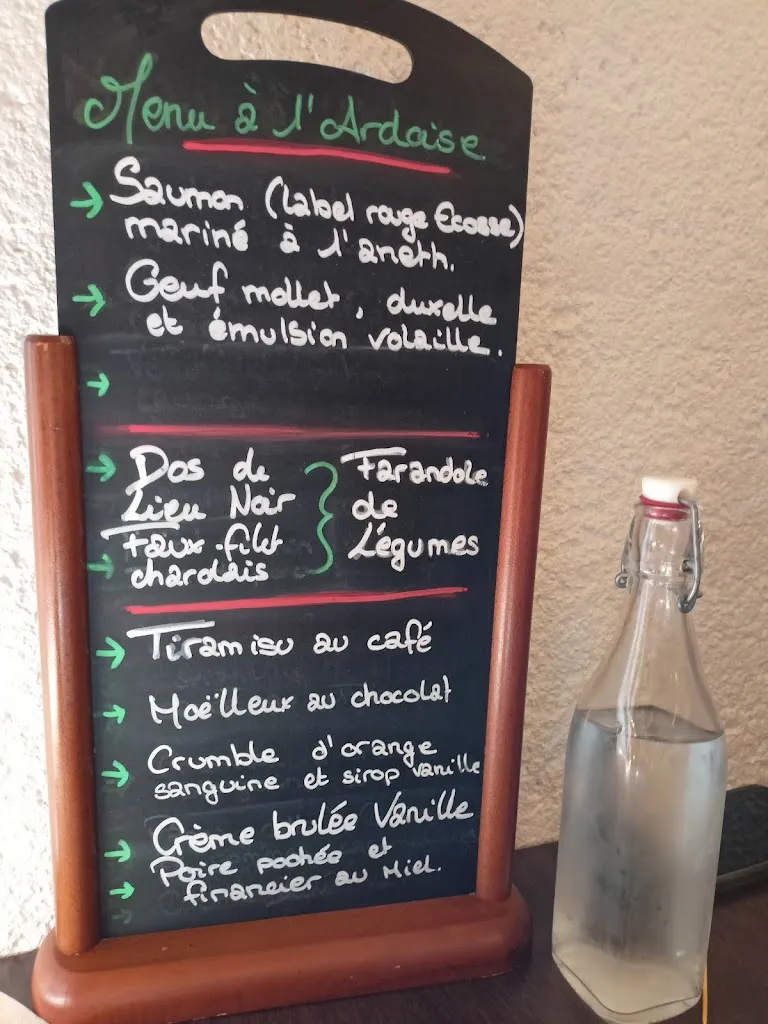 Menu à l'Ardoise
→ Saumon (Label rouge Ecosse)
mariné à l'aneth.
→ Oeuf mollet, duxelle
et émulsion volaille.
→
→ Dos de
Lieu Noir
→ Faux-filet
charolais
} Farandole
de
Légumes
→ Tiramisu au café
→ Moëlleux au chocolat
→ Crumble d'orange
sanguine et sirop vanille
→ Crème brulée Vanille
→ Poire pochée et
financier au Miel.